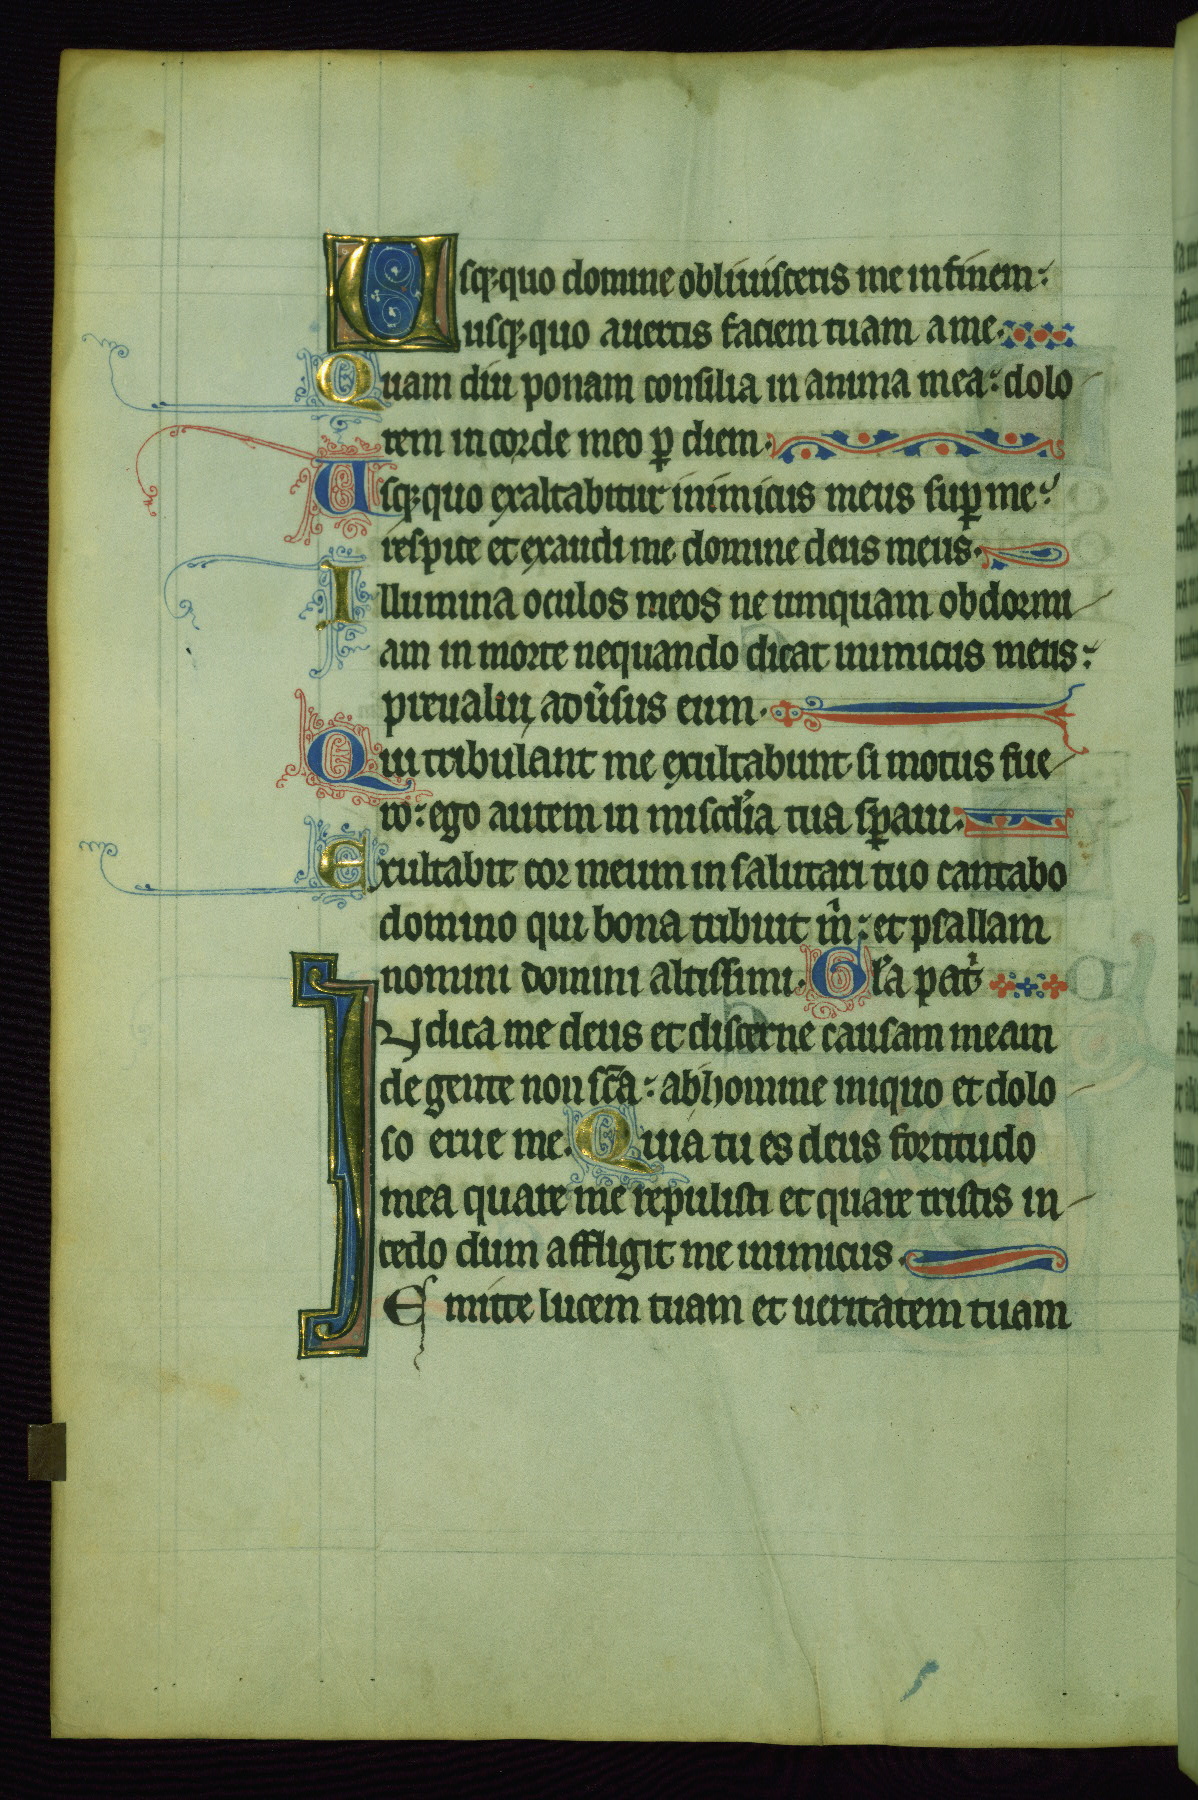 Usqꝫ quo domine obliuisceris me in finem:
usqꝫ quo auertis faciem tuam a me.
Quam diu ponam consilia in anima mea: dolo
rem in corde meo ꝑ diem.
Usqꝫ quo exaltabitur inimicus meus suꝑ me:
respice et exaudi me domine deus meus.
Illumina oculos meos ne umquam obdormi
am in morte nequando dicat inimicus meus:
preualui adũsus eum.
Qui tribulant me exultabunt si motus fue
ro: ego autem in miscd̃ia tua sꝑaui.
Exultabit cor meum in salutari tuo cantabo
domino qui bona tribuit m̃: et psallam
nomini domini altissimi. Gl̃a pat̃
Iudica me deus et discerne causam meam
de gente non sc̃a: ab homine iniquo et dolo
so erue me. Quia tu es deus fortitudo
mea quare me repulisti et quare tristis in
cedo dum affligit me inimicus.
Emitte lucem tuam et ueritatem tuam